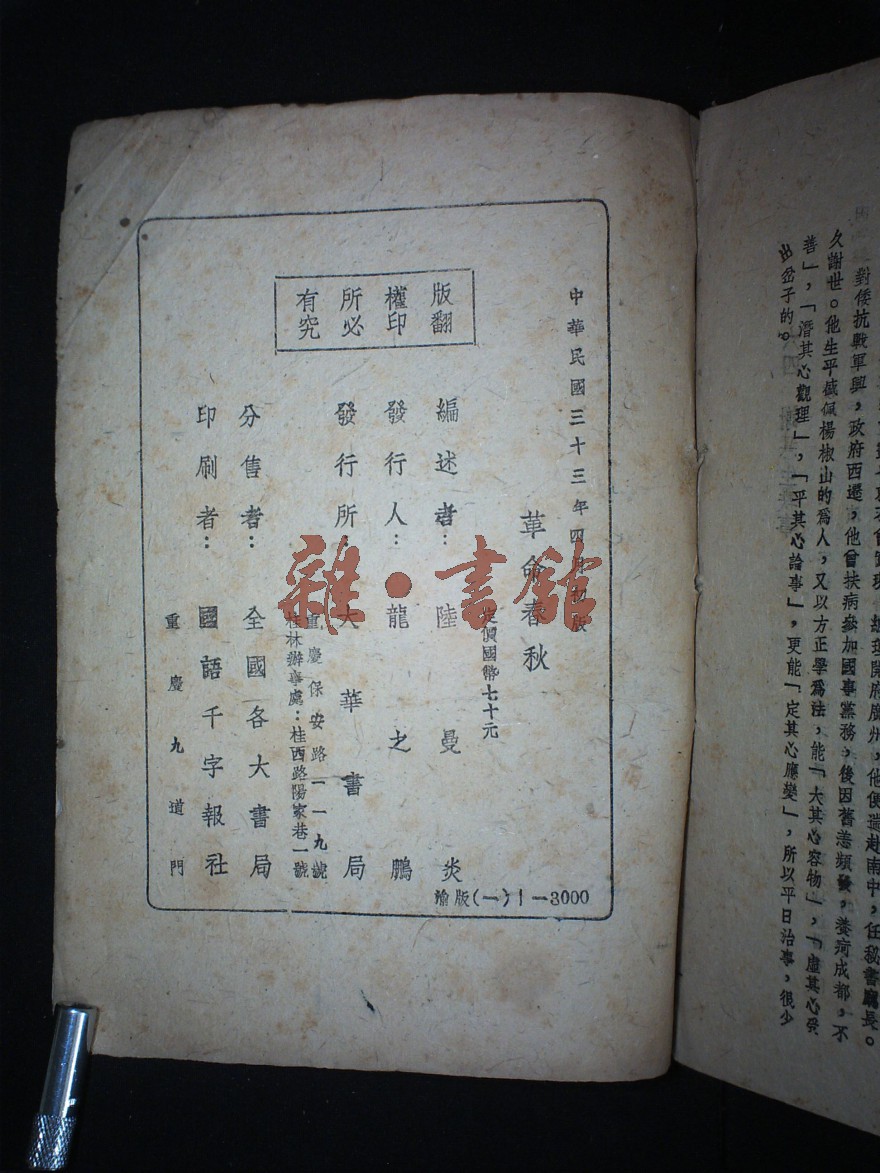 對倭抗戰軍興，政府西遷，他曾扶病參加國事黨務，後因舊恙頻發，養疴成都，不
久謝世。他生平佩楊椒山的爲人，又以方正學爲法，能「大其心容物」，「虛其心受
善」，「潛其心觀理」，「平其心論事」，更能「定其心應變」，所以平日治事，很少
出岔子的。
中華民國三十三年四月初版
革命春秋
定價國幣七十元
編述者：陸曼炎
發行人：龍之鵬
發行所：大華書局
重慶保安路一一九號
桂林辦事處：桂西路陽家巷一號
分售者：全國各大書局
印刷者：國語千字報社
重慶九道門
版權所有
翻印必究
渝版(一)1—3000
雜·書館